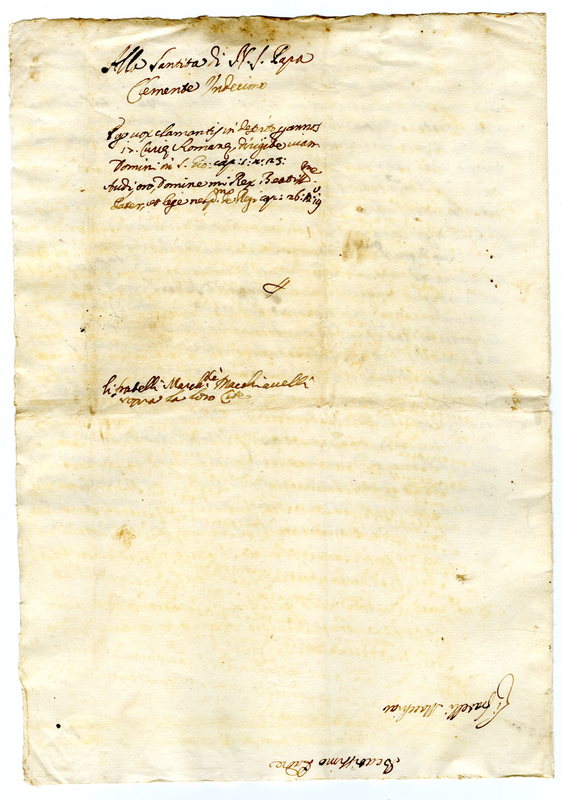 Alla Santita di N. S. Papa
Clemente Undecimo
Ego vox clamantis in deserto yannos
12. Curiæ Romanæ, dirigite viam
Domini in S. Gio. cap: 1: n: 23:
Audi oro, Domine mi Rex, Beatme
Pater, et lege neo pmo de Reg. cap: 26: nu 19
li fratelli Marchi de Macchiavelli
sopra la loro
Fratelli Macchia
Beatissimo Padre